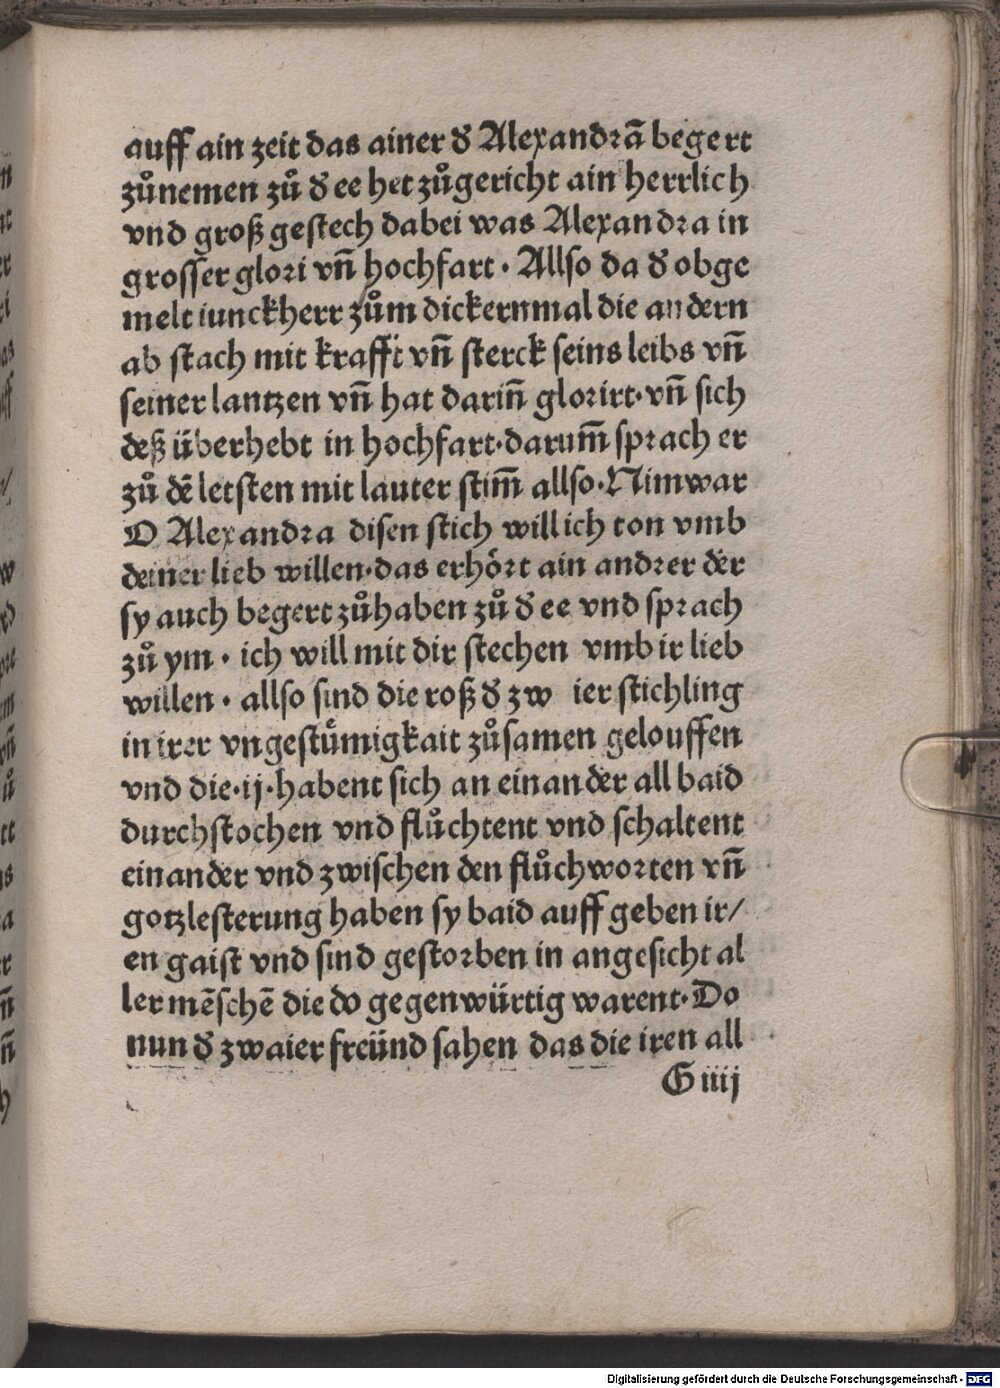 auff ain zeit das ainer d̕ Alexandrā begert
zůnemen zů d̕ ee het zůgericht ain herrlich
vnd groß gestech dabei was Alexandra in
grosser glori vn̄ hochfart · Allso da d̕ obge
melt iunckherr zům dickernmal die andern
ab stach mit krafft vn̄ sterck seins leibs vn̄
seiner lantzen vn̄ hat darin̄ glorirt· vn̄ sich
deß überhebt in hochfart· darum̄ sprach er
zů dē letsten mit lauter stim̄ allso· Nim war
O Alexandra disen stich will ich ton vmb
deiner lieb willen· das erhört ain andrer der
sy auch begert zůhaben zů d̕ ee vnd sprach
zů ym · ich will mit dir stechen vmb ir lieb
willen · allso sind die roß d̕ zw ier stichling
in irer vngestümigkait zůsamen gelouffen
vnd die ·ij· habent sich an einander all baid
durchstochen vnd flůchtent vnd schaltent
einander vnd zwischen den flůchworten vn̄
gotzlesterung haben sy baid auff geben ir/
en gaist vnd sind gestorben in angesicht al
ler mēschē die do gegenwürtig warent· Do
nun d̕ zwaier freünd sahen das die iren all
G iiij
Digitalisierung gefördert durch die Deutsche Forschungsgemeinschaft - DFG